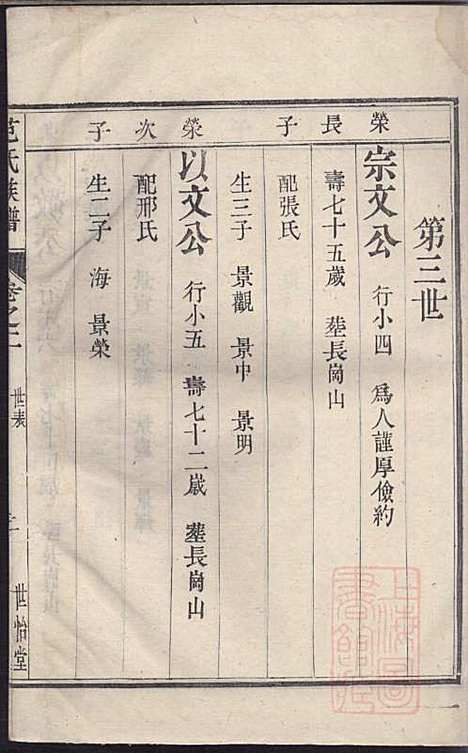 第三世
榮長子
宗文公 行小四 爲人謹厚儉約
壽七十五歲 塟長崗山
配張氏
生三子 景觀 景中 景明
榮次子
以文公 行小五 壽七十二歲 塟長崗山
配邢氏
生二子 海 景榮
范氏族譜 卷之二 世表 世怡堂
上海圖書館藏